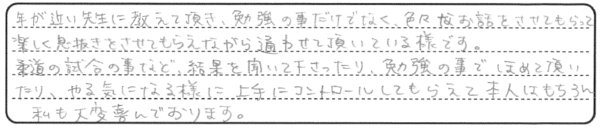 年が近い先生に教えて頂き、勉強の事だけでなく、色々なお話をさせてもらって
楽しく息抜きをさせてもらえながら通わせて頂いている様です。
柔道の試合の事など、結果を聞いて下さったり、勉強の事でほめて頂い
たり、やる気になる様に上手にコントロールしてもらえて本人はもちろん
私も大変喜んでおります。